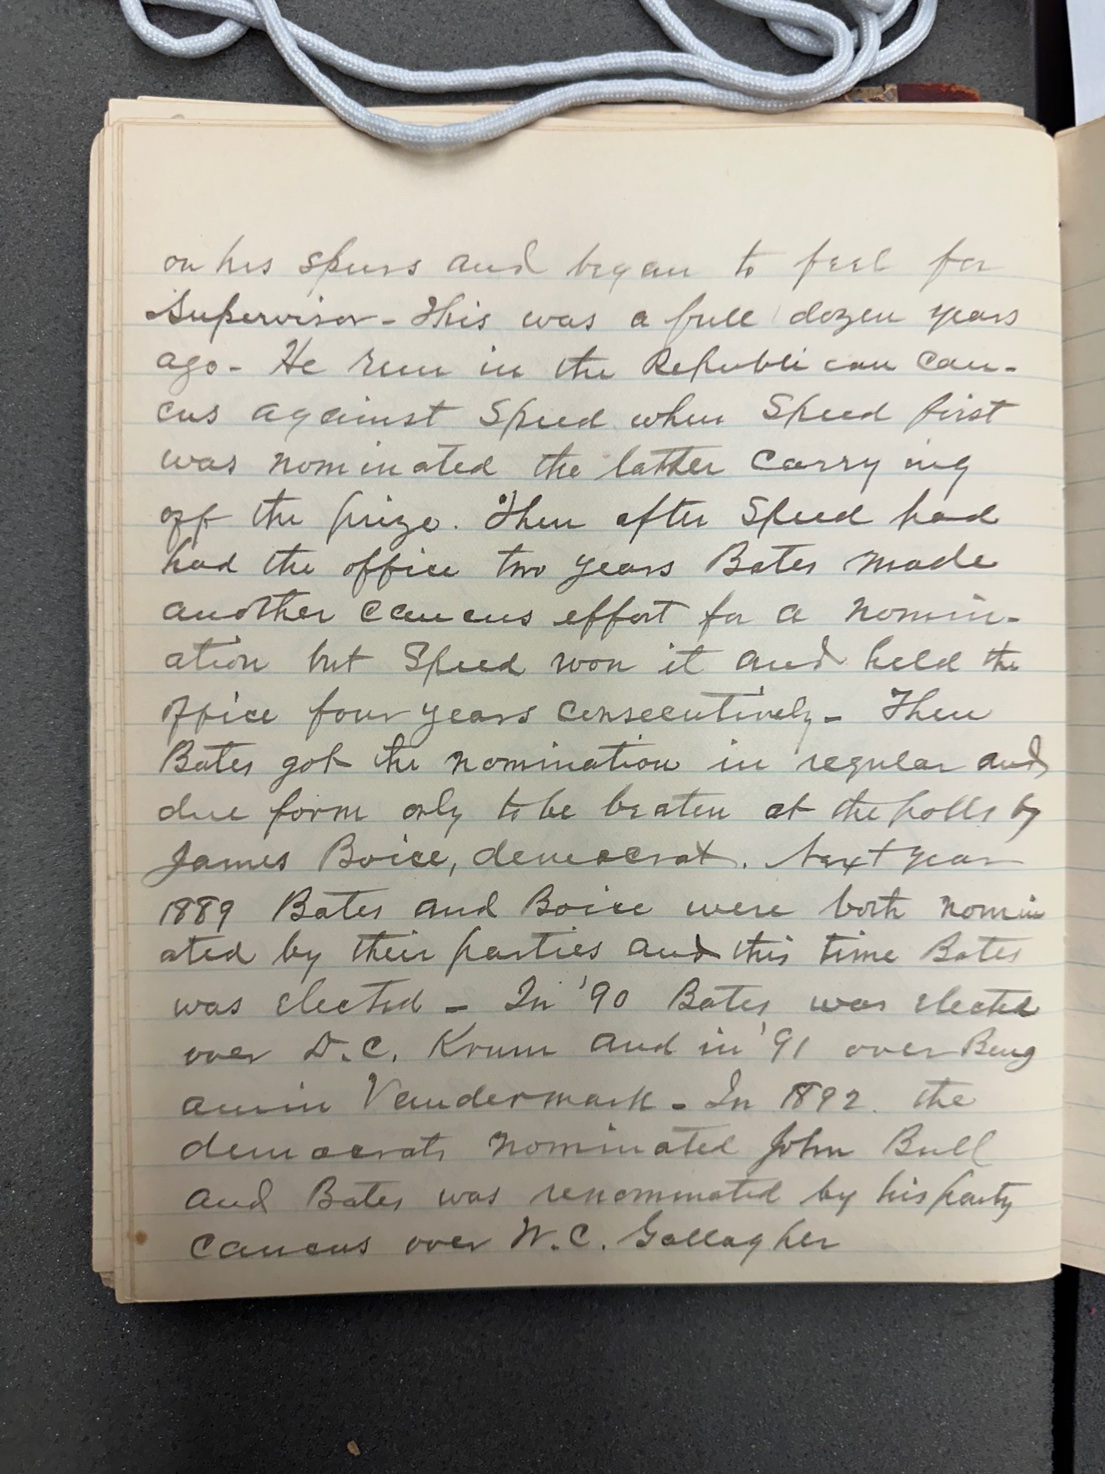 on his spurs and began to feel for
Supervisor - This was a full dozen years
ago - He run in the Republican cau-
cus against Speed when Speed first
was nominated the latter carrying
off the prize. Then after Speed had
had the office two years Bates made
another caucus effort for a nomin-
ation but Speed won it and held the
office four years consecutively - Then
Bates got the nomination in regular and
due form only to be beaten at the polls by
James Boice, democrat. Next year
1889 Bates and Boice were both nomin
ated by their parties and this time Bates
was elected - In '90 Bates was elected
over D.C. Krum and in '91 over Benj
amin Vandermark - In 1892 the
democrats nominated John Bull
and Bates was renominated by his party
caucus over W.C. Gallagher